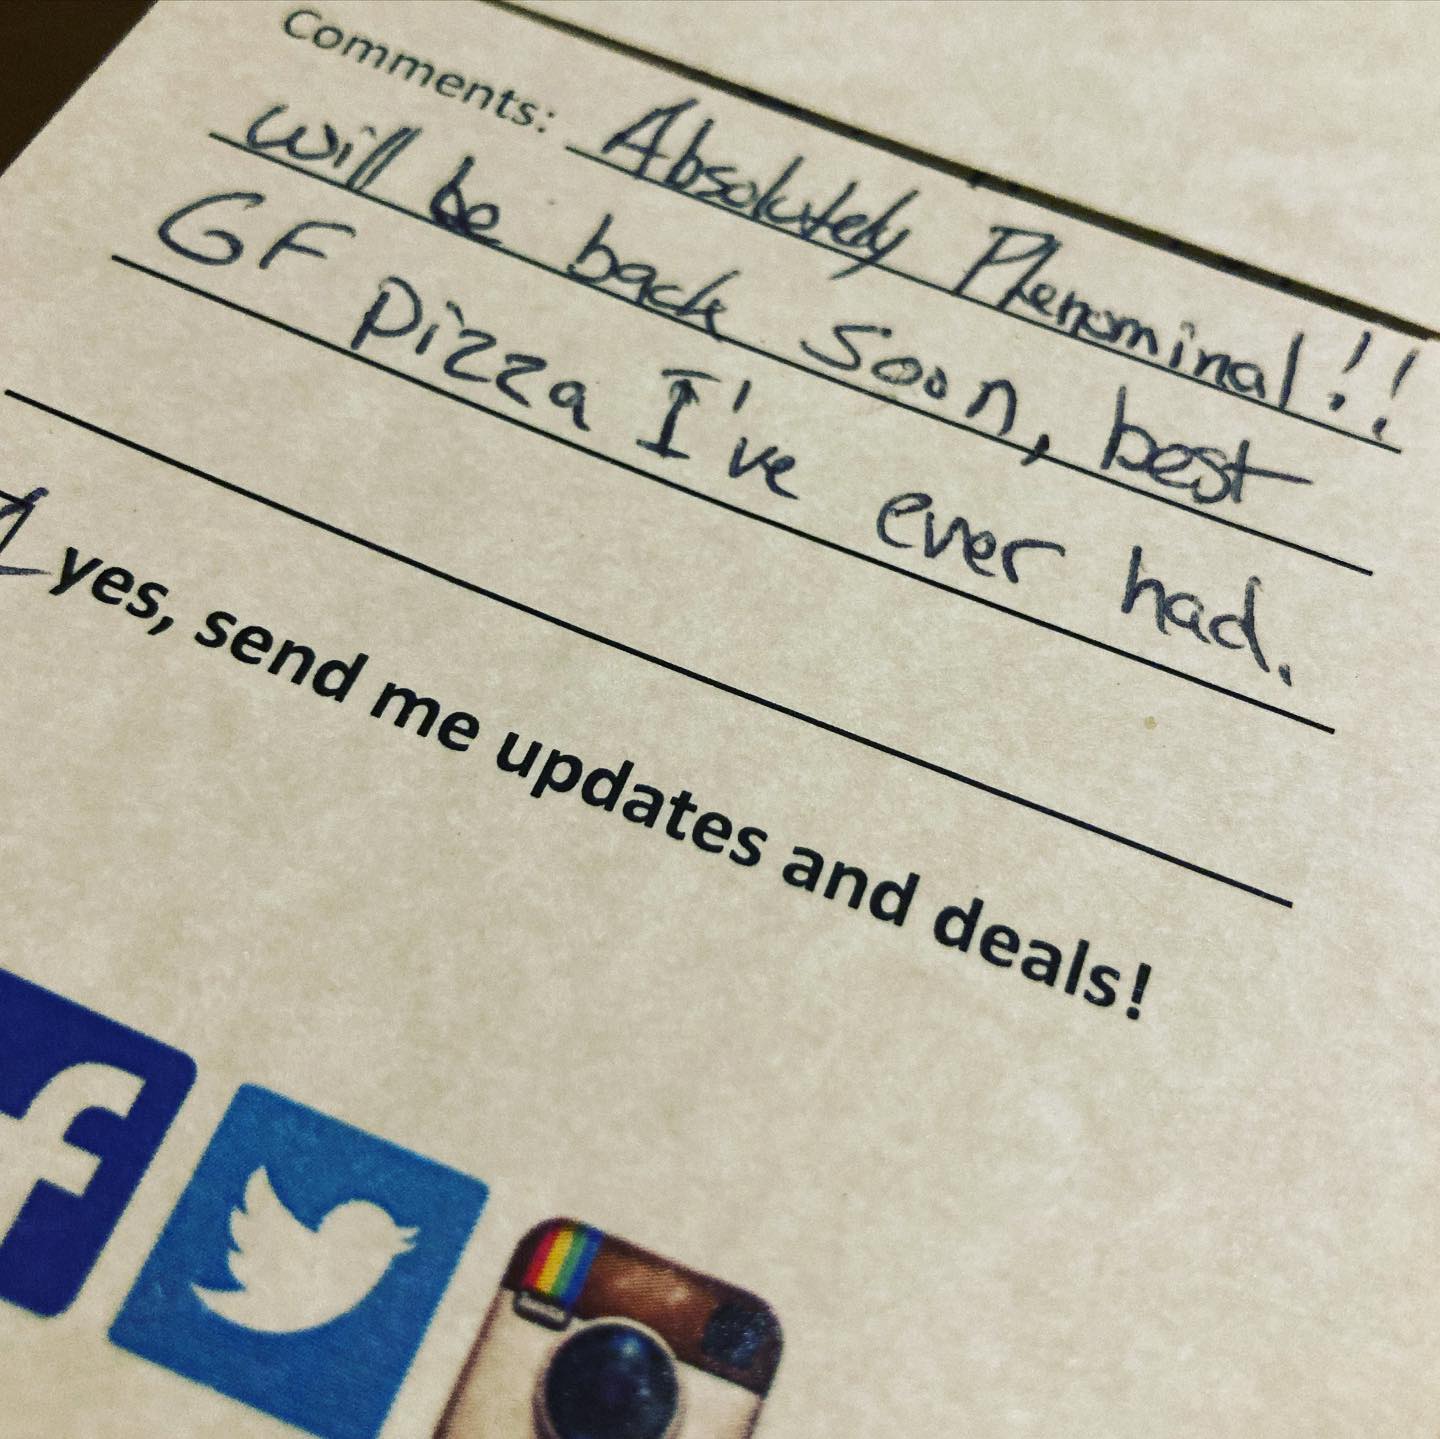 Comments: Absolutely Phenominal!!
will be back soon, best
GF pizza I've ever had.
yes, send me updates and deals!